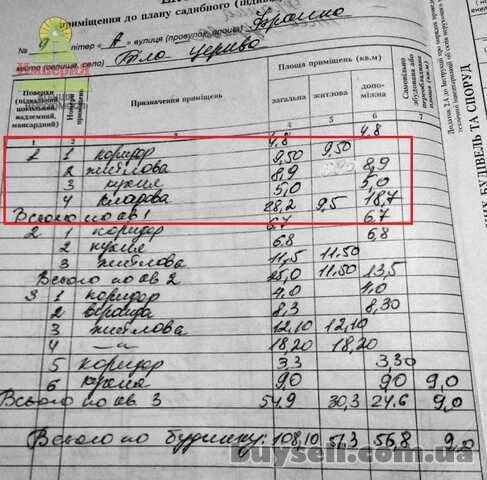 приміщень до плану садибного (інди
№ 9 літера "А" вулиця (провулок, площа)
місто (селище, село)
Империя
Поверхи (підвальний, цокольний, надземний, мансардний)
Номери приміщень
Призначення приміщень
Площа приміщень (кв.м)
загальна житлова допоміжна
Додаток 2А до Інструкції про порядок
НИХ БУДІВЕЛЬ ТА СПОРУД
1 2 3 4 5 6 7
1 коридор 4,8 4,8
2 житлова 9,50 9,50
3 кухня 8,9 8,9
4 кладова 5,0 5,0
Всього по кв 1 28,2 9,5 18,7
2 1 коридор 6,7 6,7
2 кухня 6,8 6,8
3 житлова 11,5 11.50
Всього по кв 2 25,0 11.50 13,5
3 1 коридор 4,0 4,0
2 веранда 8,3 8,30
3 житлова 12,10 12,10
4 —"— 18,20 18,20
5 коридор 3,3 3,30
6 кухня 9,0 9,0 9,0
Всього по кв 3 54,9 30,3 24,6 9,0
Всього по будинку: 108,10 51,3 56,8 9,0
buysell.com.ua